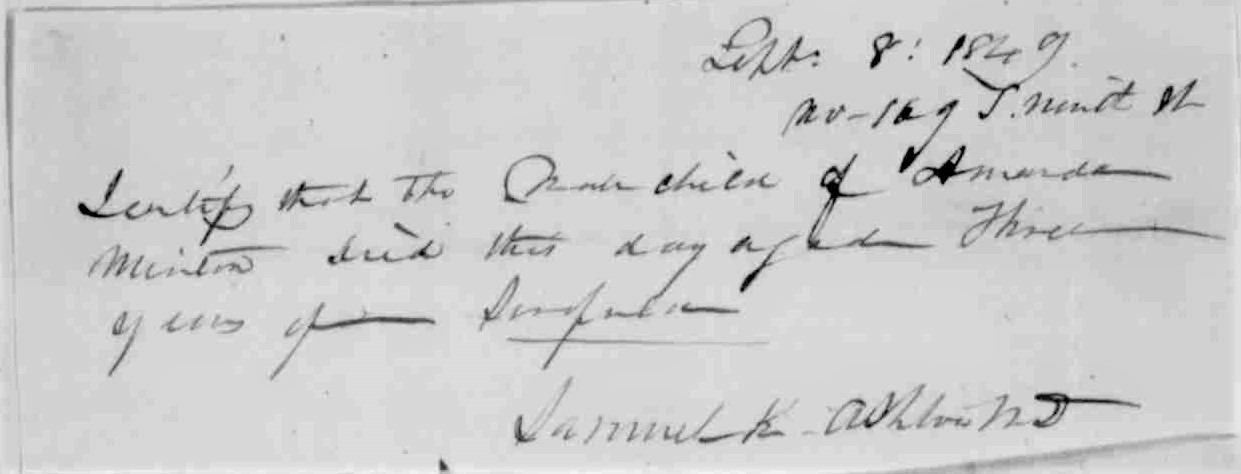 Sept: 8: 1849.
No-169 S. ninth St
I certify that the Male child of Amanda
Minton died this day aged Three
years of Scrofula
Samuel K. Ashton MD